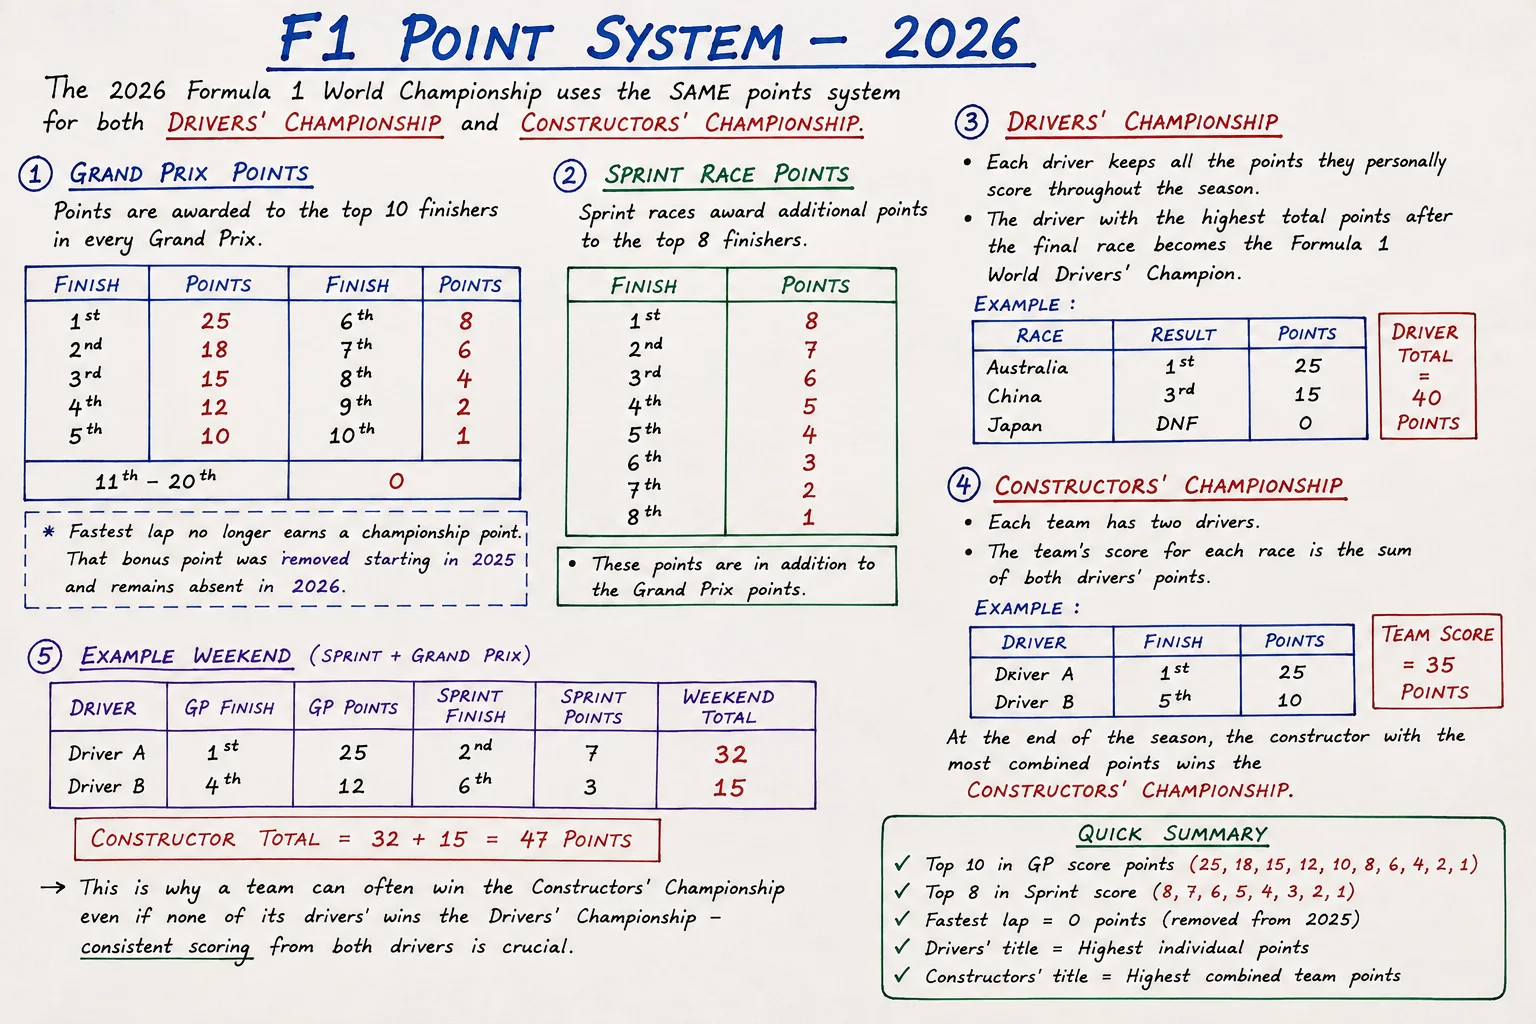 F1 POINT SYSTEM – 2026
The 2026 Formula 1 World Championship uses the SAME points system
for both DRIVERS' CHAMPIONSHIP and CONSTRUCTORS' CHAMPIONSHIP.
1 GRAND PRIX POINTS
Points are awarded to the top 10 finishers
in every Grand Prix.
FINISH POINTS FINISH POINTS
1st 25 6th 8
2nd 18 7th 6
3rd 15 8th 4
4th 12 9th 2
5th 10 10th 1
11th – 20th 0
* Fastest lap no longer earns a championship point.
That bonus point was removed starting in 2025
and remains absent in 2026.
2 SPRINT RACE POINTS
Sprint races award additional points
to the top 8 finishers.
FINISH POINTS
1st 8
2nd 7
3rd 6
4th 5
5th 4
6th 3
7th 2
8th 1
• These points are in addition to
the Grand Prix points.
3 DRIVERS' CHAMPIONSHIP
• Each driver keeps all the points they personally
score throughout the season.
• The driver with the highest total points after
the final race becomes the Formula 1
World Drivers' Champion.
EXAMPLE :
RACE RESULT POINTS
Australia 1st 25
China 3rd 15
Japan DNF 0
DRIVER
TOTAL
=
40
POINTS
4 CONSTRUCTORS' CHAMPIONSHIP
• Each team has two drivers.
• The team's score for each race is the sum
of both drivers' points.
EXAMPLE :
DRIVER FINISH POINTS
Driver A 1st 25
Driver B 5th 10
TEAM SCORE
= 35
POINTS
At the end of the season, the constructor with the
most combined points wins the
CONSTRUCTORS' CHAMPIONSHIP.
5 EXAMPLE WEEKEND (SPRINT + GRAND PRIX)
DRIVER GP FINISH GP POINTS SPRINT FINISH SPRINT POINTS WEEKEND TOTAL
Driver A 1st 25 2nd 7 32
Driver B 4th 12 6th 3 15
CONSTRUCTOR TOTAL = 32 + 15 = 47 POINTS
→ This is why a team can often win the Constructors' Championship
even if none of its drivers' wins the Drivers' Championship –
consistent scoring from both drivers is crucial.
QUICK SUMMARY
✓ Top 10 in GP score points (25, 18, 15, 12, 10, 8, 6, 4, 2, 1)
✓ Top 8 in Sprint score (8, 7, 6, 5, 4, 3, 2, 1)
✓ Fastest lap = 0 points (removed from 2025)
✓ Drivers' title = Highest individual points
✓ Constructors' title = Highest combined team points